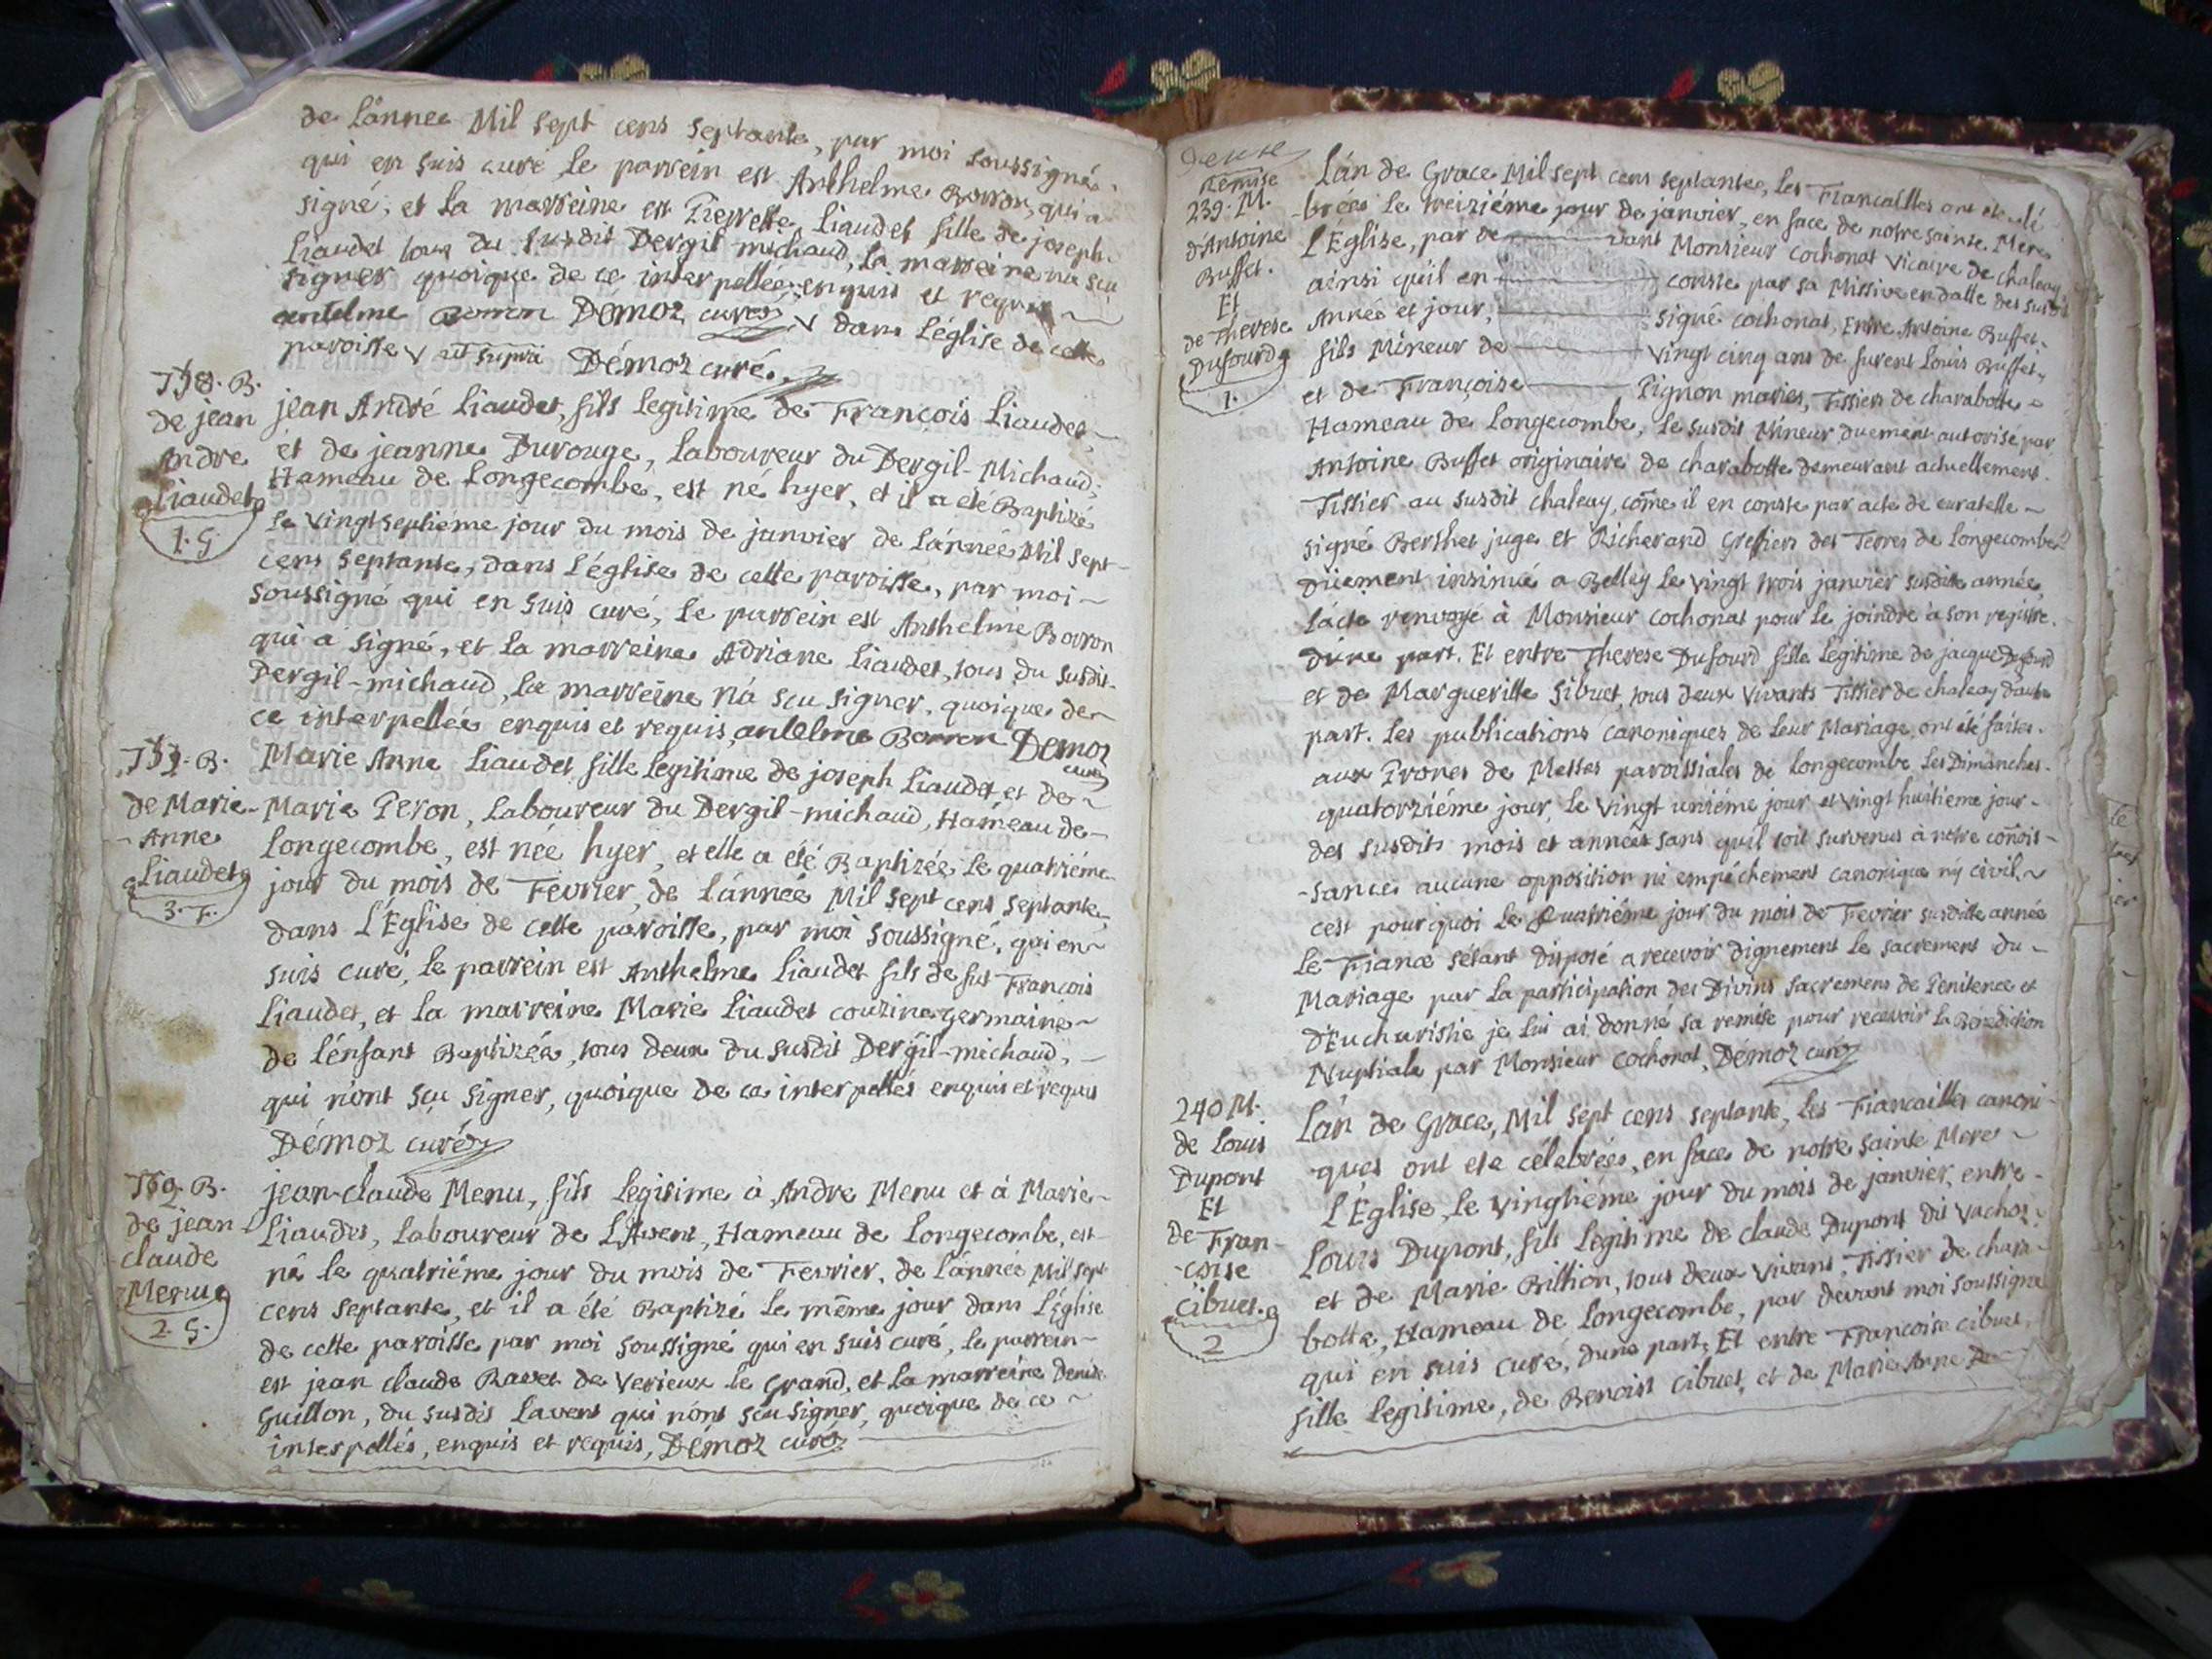 de l'année Mil sept cens septante, par moi soussigné
qui en suis curé, le parrein est Anthelme Borron, qui a
signé, et la marreine est Pierrette Liaudet fille de joseph
Liaudet tous du susdit Dergil michaud, la marreine n'a sçu
signer quoique de ce interpellée, enquis et requis
antelme Borron Démoz curé v dans l'église de cette
paroisse v ut supra Démoz curé.
de jean
Andre
Liaudet
1. G.
jean André Liaudet, fils legitime de François Liaudet
et de jeanne Durouge, Laboureur du Dergil-Michaud,
Hameau de Longecombe, est né hyer, et il a été Baptizé
le vingt septiéme jour du mois de janvier de l'année Mil sept
cens septante, dans l'église de cette paroisse, par moi
soussigné qui en suis curé, le parrein est Anthelme Borron
qui a signé, et la marreine Adriane Liaudet, tous du susdit
Dergil-michaud, la marreine n'a scu signer, quoique de
ce interpellée enquis et requis, antelme Borron Démoz
curé
de Marie
Anne
Liaudet
3. F.
Marie Anne Liaudet fille legitime de joseph Liaudet et de
Marie Peron, Laboureur du Dergil-michaud, Hameau de
Longecombe, est née hyer, et elle a été Baptizée le quatriéme
jour du mois de Fevrier, de l'année Mil sept cens septante,
dans l'Église de cette paroisse, par moi soussigné, qui en
suis curé, le parrein est Anthelme Liaudet fils de fut François
Liaudet, et la marreine Marie Liaudet couzine germaine
de l'énfant Baptizée, tous deux du susdit Dergil-michaud,
qui n'ont sçu signer, quoique de ce interpellés enquis et requis
Démoz curé
de jean
claude
Menu
2. G.
jean-claude Menu, fils legitime à Andre Menu et à Marie
Liaudet, Laboureur de L'Avent, Hameau de Longecombe, est
né le quatriéme jour du mois de Fevrier, de l'année Mil sept
cens septante, et il a été Baptizé le même jour dans l'Église
de cette paroisse par moi soussigné qui en suis curé, le parrein
est jean claude Ravet de Verieux le Grand, et la marreine Denise
Guillon, du susdit Lavent qui n'ont scu signer, quoique de ce
interpellés, enquis et requis, Démoz curé
Remise
239. M.
d'Antoine
Buffet.
Et
de Therese
Dufourd
1.
L'an de Grace Mil sept cens septante, les Fiancailles ont eté célé
brées le treiziéme jour de janvier, en face de notre sainte Mere
l'Église, par devant Monsieur Cochonat Vicaire de chaley
ainsi qu'il en conste par sa Missive en datte des susdits
Année et jour, signé Cochonat, Entre Antoine Buffet
fils Mineur de vingt cinq ans de furent Louis Buffet
et de Françoise Pignon maries, Tissiers de charabotte
Hameau de Longecombe, le susdit Mineur duement autorisé par
Antoine Buffet originaire de charabotte demeurant actuellement
Tissier au susdit chaley, come il en conste par acte de curatelle
signé Berthet juge et Richerand Greffiers des Terres de Longecombe
Düement insinué a Belley le vingt trois janvier susditte année
l'acte renvoyé à Monsieur Cochonat pour le joindre a son registre
d'une part. Et entre Therese Dufourd fille legitime de jacque Dufourd
et de Margueritte Sibuet, tous deux vivants Tissier de chaley d'autre
part. les publications canoniques de leur Mariage, ont été faites
aux Prones de Messes paroissiales de Longecombe les Dimanches
quatorziéme jour, le vingt uniéme jour et vingt huitieme jour
des susdits mois et années sans quil soit survenus à notre connois
-sance aucune opposition ni empéchement canonique ny civil
cest pourquoi le quatriéme jour du mois de Fevrier susditte année
le Fiance sétant disposé a recevoir dignement le sacrement du
Mariage par la participation des Divins sacremens de Penitence et
d'Eucharistie je lui ai donné sa remise pour recevoir la Benediction
Nuptiale par Monsieur Cochonat, Démoz curé
240 M.
de Louis
Dupont
Et
de Fran
-coise
Cibuet.
2
L'an de Grace, Mil sept cens septante, les Fiancailles canoni
ques ont eté célébrées, en face de notre sainte Mere
l'Église, le vingtiéme jour du mois de janvier, entre
Louis Dupont, fils legitime de claude Dupont dit Vachoz
et de Marie Brillion, tous deux vivans, Tissier de chara
botte, Hameau de Longecombe, par devant moi soussigné
qui en suis curé, dune part, Et entre Francoise Cibuet,
fille legitime, de Benoist Cibuet, et de Marie Anne